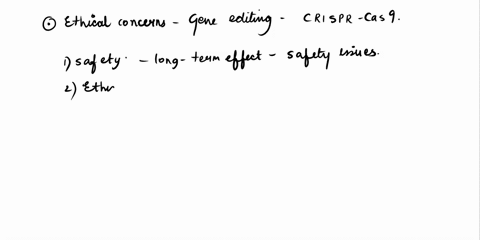 ⊙ Ethical concerns - Gene editing - CRISPR-Cas9.
1) safety. - long-term effect - safety issues.
2) Eth